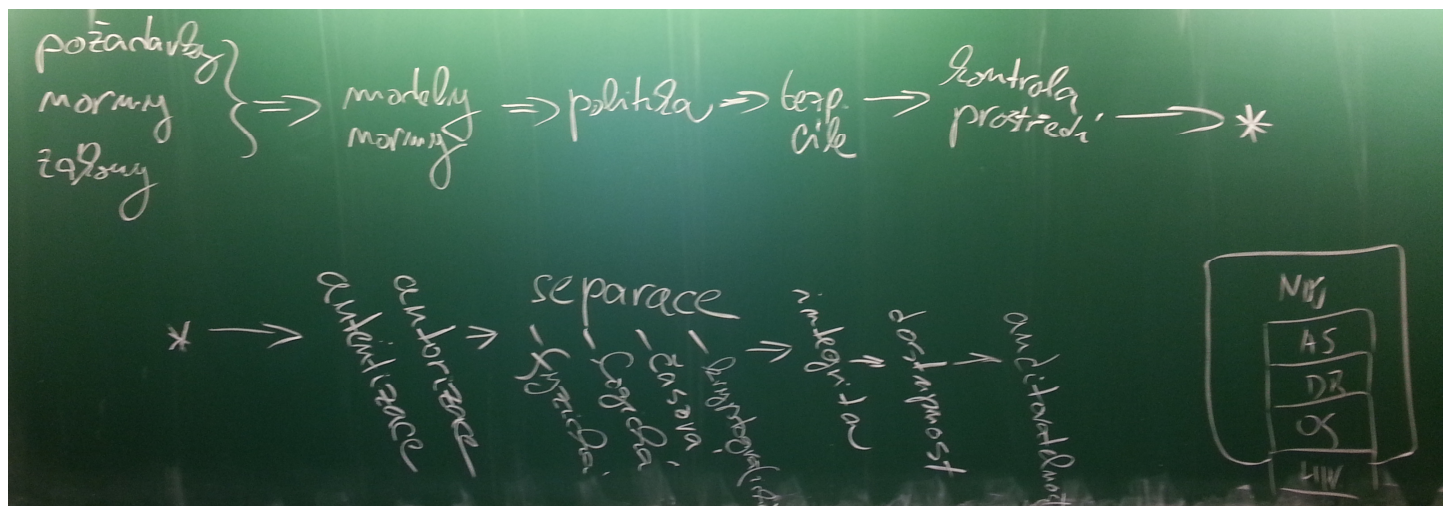 požadavky
normy
zákony
} => modely
normy
=> politika => bezp.
cíle
→ kontrola
prostředí → *
* → autentizace
autorizace
→ separace
- fyzická
- logická
- časová
- kryptografická
→ integrita → dostupnost → auditovatelnost
AS
DB
OS
HW